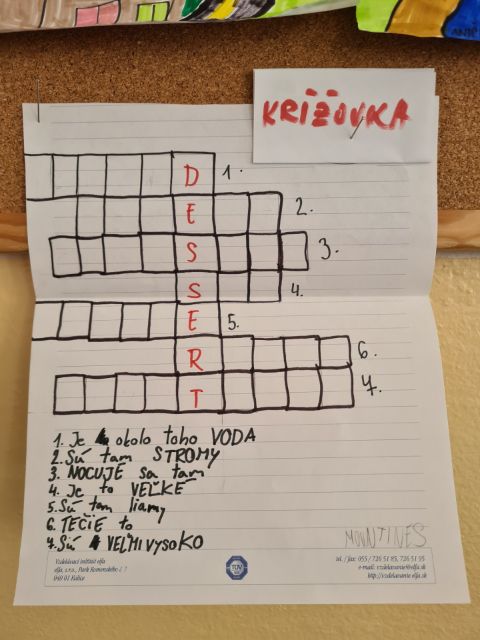 KRÍŽOVKA
D 1.
E 2.
S 3.
S 4.
E 5.
R 6.
T 7.
1. Je okolo toho VODA
2. Sú tam STROMY
3. NOCUJE sa tam
4. Je to VEĽKÉ
5. Sú tam liamy
6. TEČIE to
7. Sú VEĽMI VYSOKO
MOUNTINES
Vzdelávací inštitút elfa
elfa, s.r.o., Park Komenského 7
040 01 Košice
TÜV
tel. / fax: 055 / 726 51 85, 726 51 95
e-mail: vzdelavanie@elfa.sk
http://vzdelavanie.elfa.sk